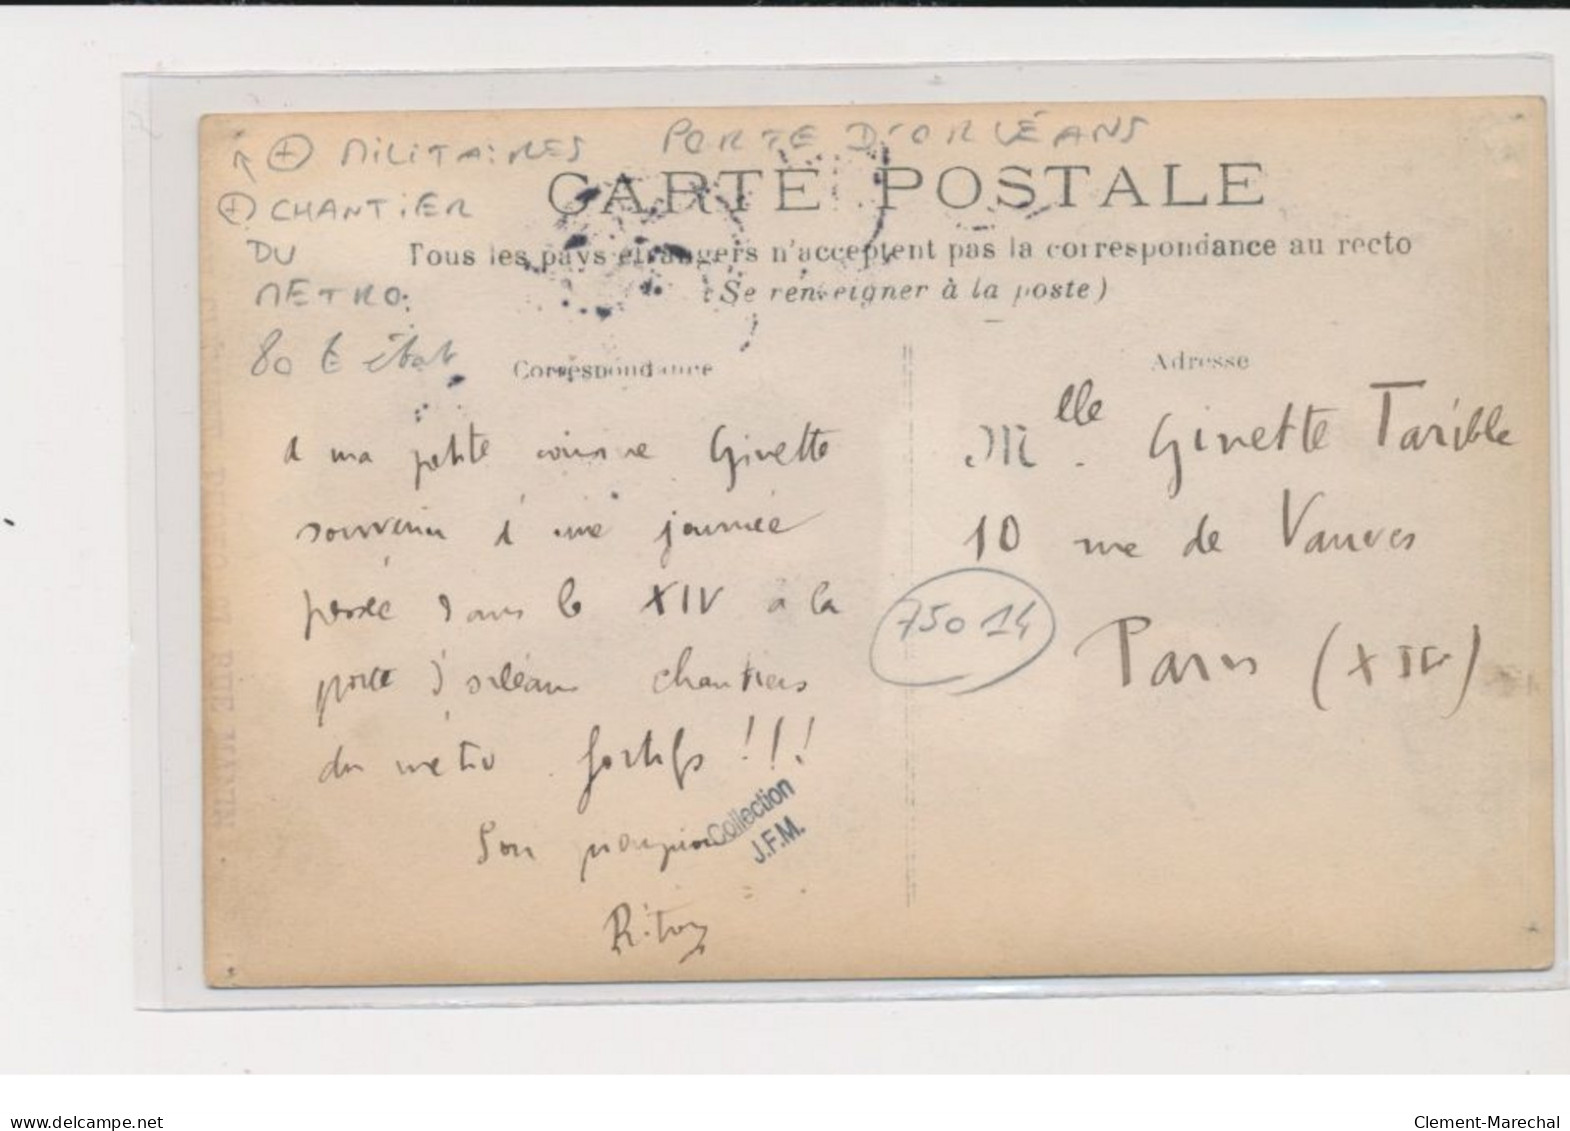 + MILITAIRES PORTE D'ORLÉANS
+ CHANTIER
DU
METRO.
80 € état
CARTE POSTALE
Tous les pays étrangers n'acceptent pas la correspondance au recto
(Se renseigner à la poste)
Correspondance
Adresse
A ma petite cousine Ginette
souvenir d'une journée
passée dans le XIV à la
porte d'orléans chantiers
du métro. fortifs !!!
Son
Riton
Collection
J.F.M.
Mlle. Ginette Tarible
10 rue de Vanves
75014
Paris (XIV)
delcampe.net
Clement-Marechal